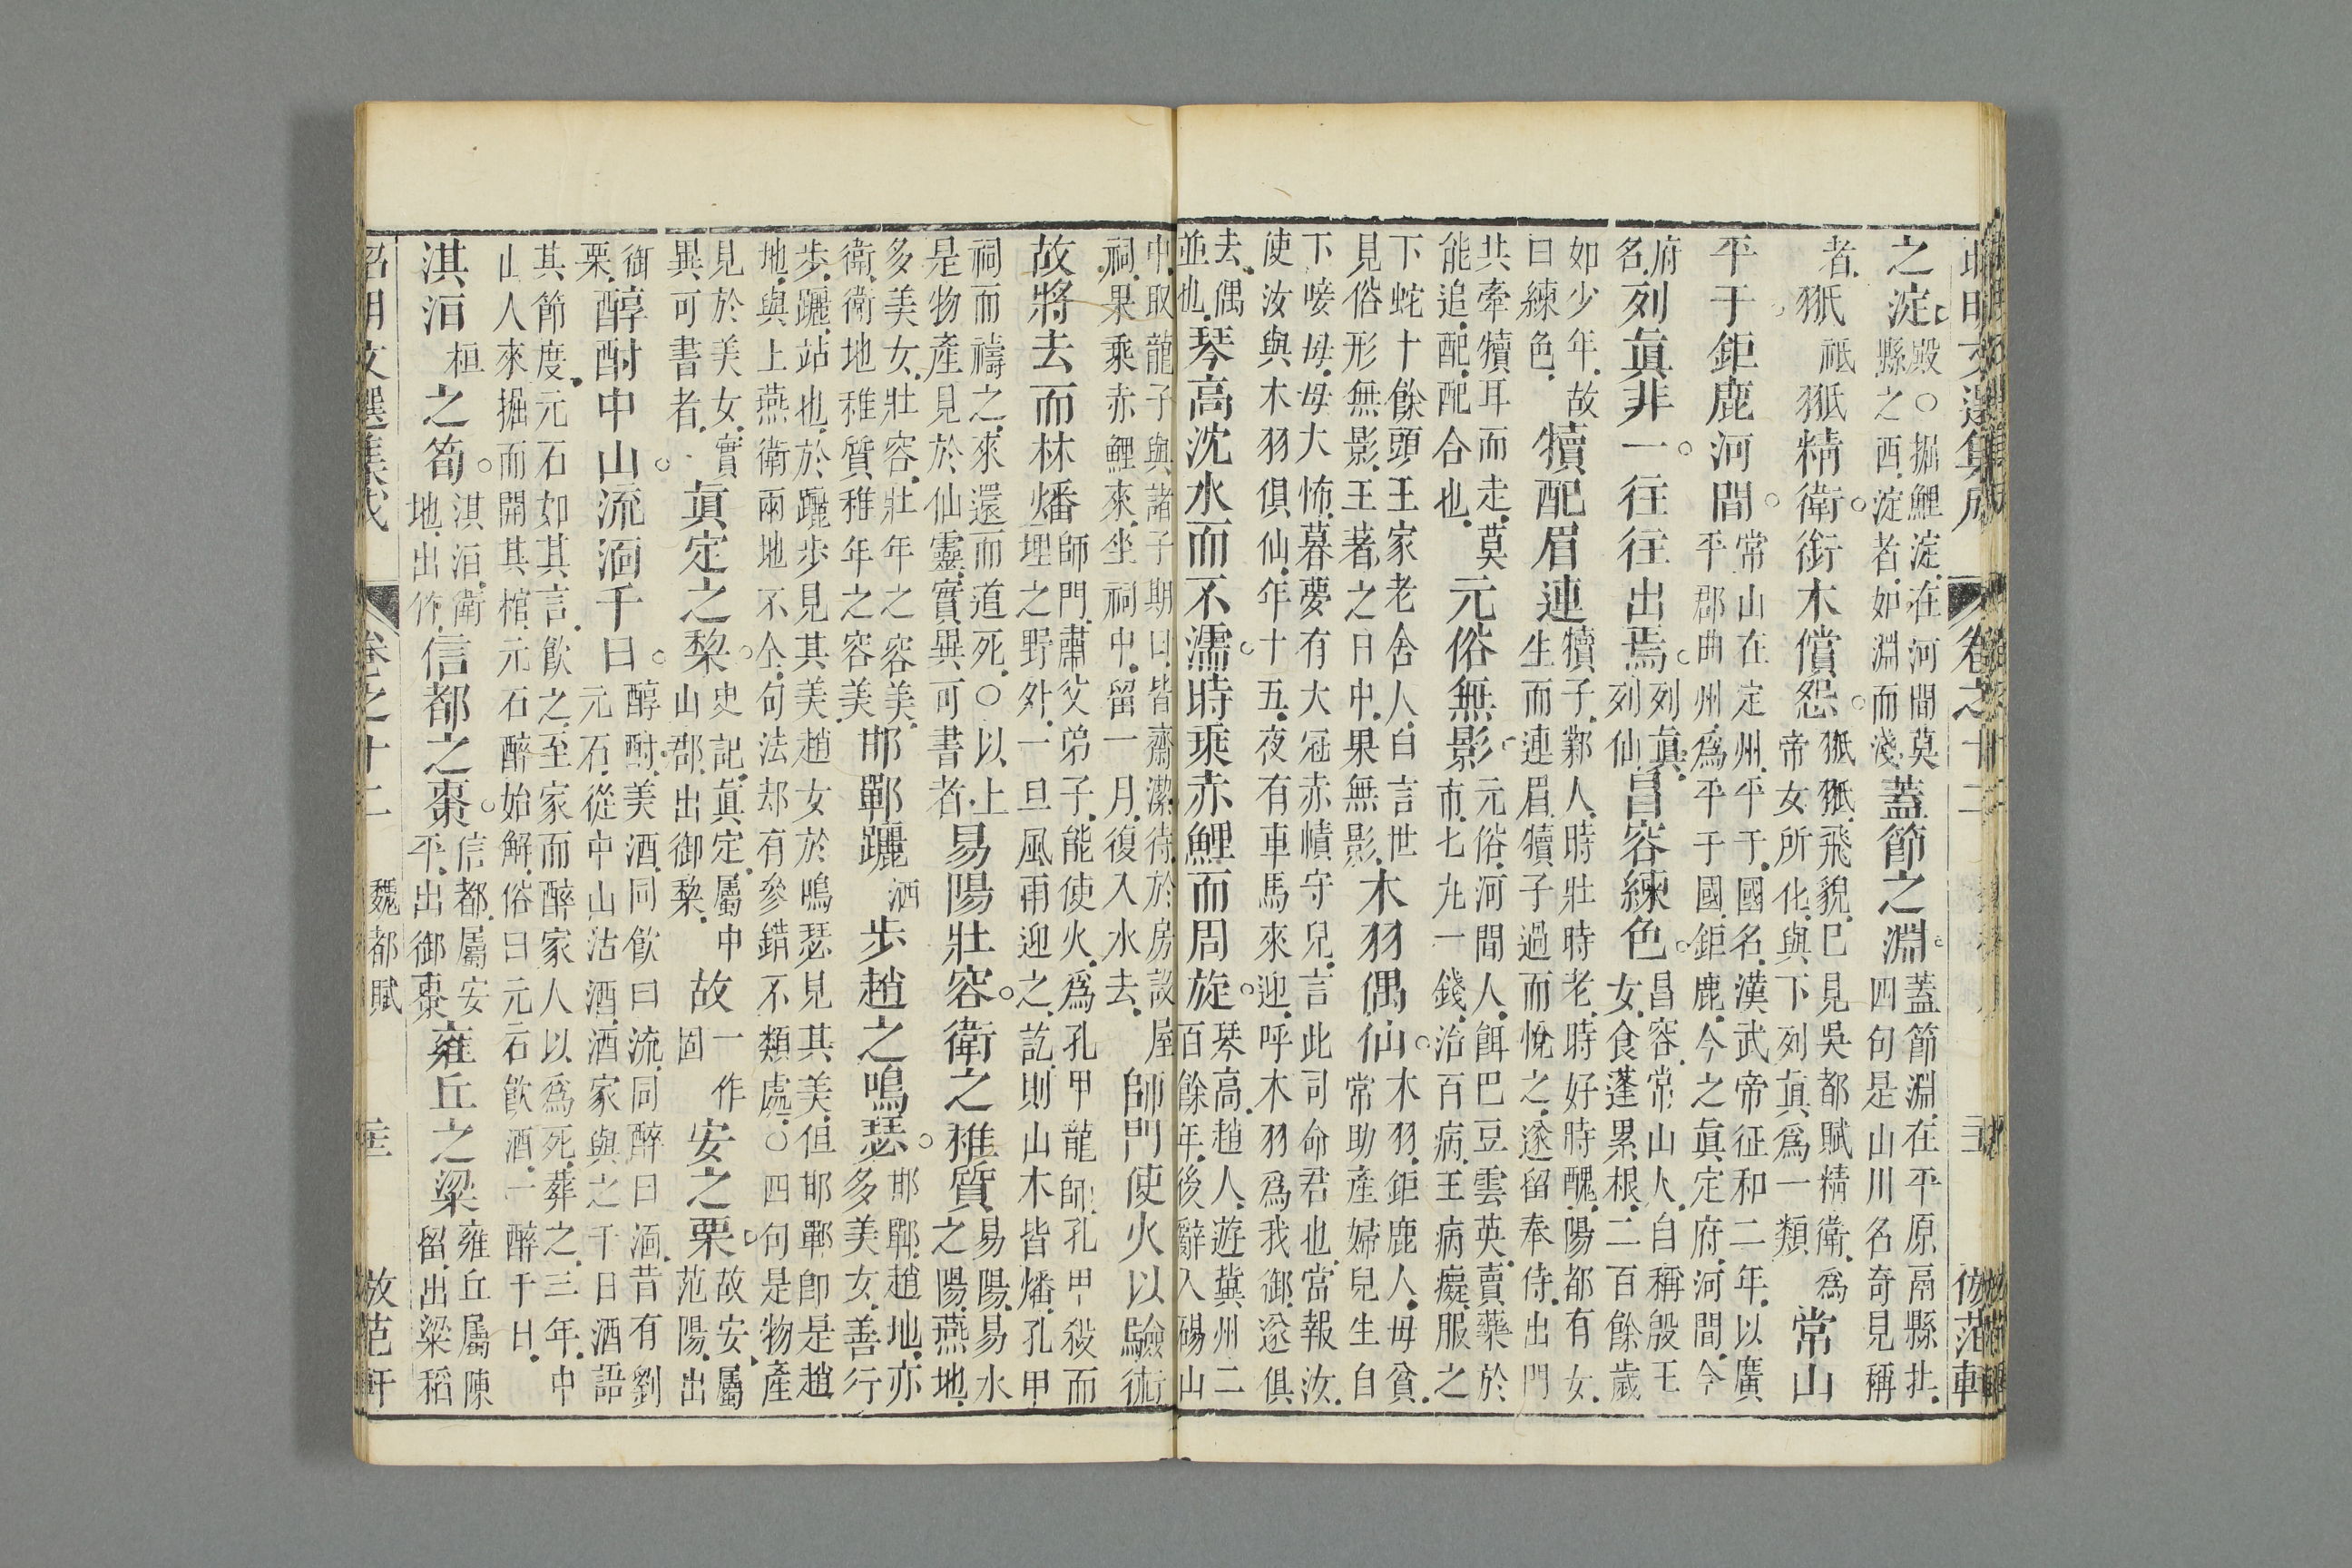 昭明文選集成 卷之十二 倣范軒
之淀殿○掘鯉淀在河間莫縣之西淀者如淵而淺蓋節之淵蓋節淵在平原鬲縣北四句是山川名奇見稱
者祗精衛銜木償怨飛貌已見吳都賦精衛爲帝女所化與下列眞爲一類常山
平于鉅鹿河間常山在定州平于國名漢武帝征和二年以廣平郡曲州爲平于國鉅鹿今之眞定府河間今
府名列眞非一往往出焉列眞列仙昌容練色昌容常山人自稱殷王女食蓬累根二百餘歲
如少年故曰練色犢配眉連犢子鄴人時壯時老時好時醜陽都有女生而連眉犢子過而悅之遂留奉侍出門
共牽犢耳而走莫能追配配合也元俗無影元俗河間人餌巴豆雲英賣藥於市七丸一錢治百病王病癡服之
下蛇十餘頭王家老舍人自言世見俗形無影王著之日中果無影木羽偶仙木羽鉅鹿人母貧常助產婦兒生自
下唼母母大怖暮夢有大冠赤幘守兒言此司命君也當報汝使汝與木羽俱仙年十五夜有車馬來迎呼木羽爲我御遂俱
去偶並也琴高沈水而不濡時乘赤鯉而周旋琴高趙人遊冀州二百餘年後辭入碭山
中取龍子與諸子期曰皆齋潔待於房設屋祠果乘赤鯉來坐祠中留一月復入水去師門使火以驗術
故將去而林燔師門肅父弟子能使火爲孔甲龍師孔甲殺而埋之野外一旦風雨迎之訖則山木皆燔孔甲
祠而禱之來還而道死○以上是物產見於仙靈實異可書者易陽壯容衛之稚質易陽易水之陽燕地
多美女壯容壯年之容美衛衛地稚質稚年之容美邯鄲躧洒步趙之鳴瑟邯鄲趙地亦多美女善行
步躧站也於躧步見其美趙女於鳴瑟見其美但邯鄲卽是趙地與上燕衛兩地不仝句法却有參錯不類處○四句是物產
見於美女實異可書者眞定之棃史記眞定屬中山郡出御棃故一作固安之栗故安屬范陽出御
栗醇酎中山流湎千日醇酎美酒同飮曰流同醉曰湎昔有劉元石從中山沽酒酒家與之千日酒語
其節度元石如其言飮之至家而醉家人以爲死葬之三年中山人來掘而開其棺元石醉始解俗曰元石飮酒一醉千日
淇洹桓之筍淇洹衛地出作信都之棗信都屬安平出御棗雍丘之粱雍丘屬陳留出粱稻
昭明文選集成 卷之十二 魏都賦 倣范軒